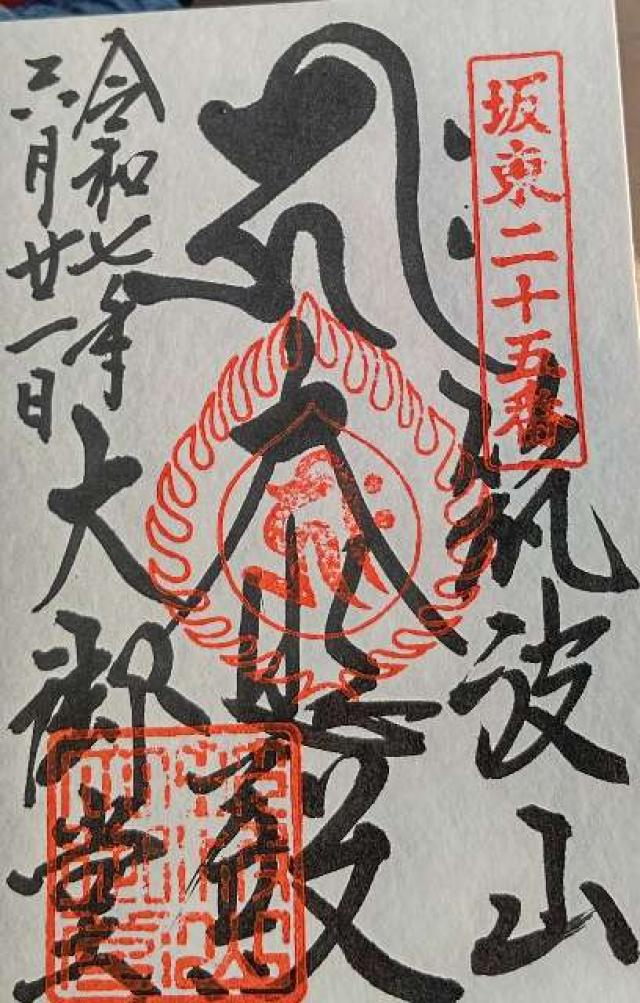 坂東二十五番
筑波山
大悲殿
大御堂
令和七年
六月廿一日